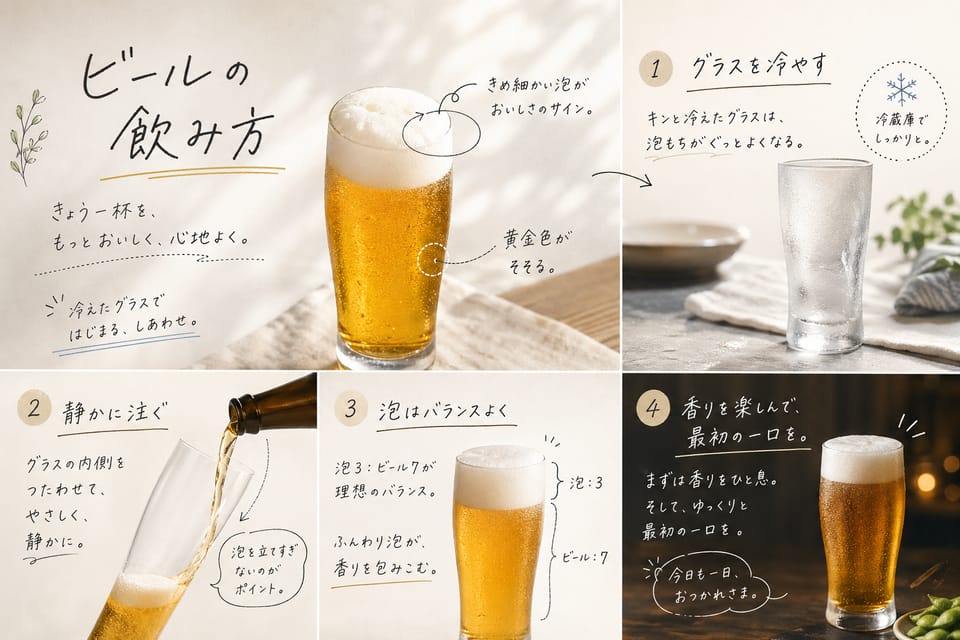 ビールの
飲み方
きょう一杯を、
もっとおいしく、心地よく。
冷えたグラスで
はじまる、しあわせ。
きめ細かい泡が
おいしさのサイン。
黄金色が
そそる。
1 グラスを冷やす
キンと冷えたグラスは、
泡もちがぐっとよくなる。
冷蔵庫で
しっかりと。
2 静かに注ぐ
グラスの内側を
つたわせて、
やさしく、
静かに。
泡を立てすぎ
ないのが
ポイント。
3 泡はバランスよく
泡3：ビール7が
理想のバランス。
ふんわり泡が、
香りを包みこむ。
泡：3
ビール：7
4 香りを楽しんで、
最初の一口を。
まずは香りをひと息。
そして、ゆっくりと
最初の一口を。
今日も一日、
おつかれさま。